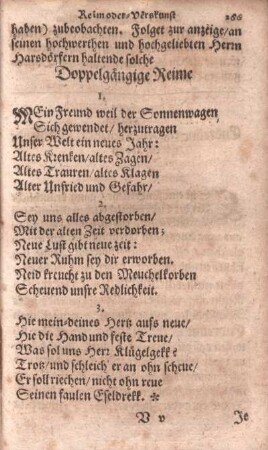 Reimoder-Verskunst 266
haben) zubeobachten. Folget zur anzeige/an
seinen hochwerthen und hochgeliebten Herrn
Harsdörfern haltende solche
Doppelgängige Reime
1.
MEin Freund weil der Sonnenwagen
Sich gewendet/ herzutragen
Unser Welt ein neues Jahr:
Altes Krenken/altes Zagen/
Altes Trauren/altes Klagen
Alter Unfried und Gefahr/
2.
Sey uns alles abgestorben/
Mit der alten Zeit verdorben;
Neue Lust gibt neue zeit:
Neuer Ruhm sey dir erworben.
Neid kreucht zu den Meuchelkorben
Scheuend unsre Redlichkeit.
3.
Hie mein-deines Hertz aufs neue/
Hie die Hand und feste Treue/
Was sol uns Herr Klügelgekk?
Trotz/und schleich' er an ohn scheue/
Er soll riechen/nicht ohn reue
Seinen faulen Eseldrekk. *
V v Je